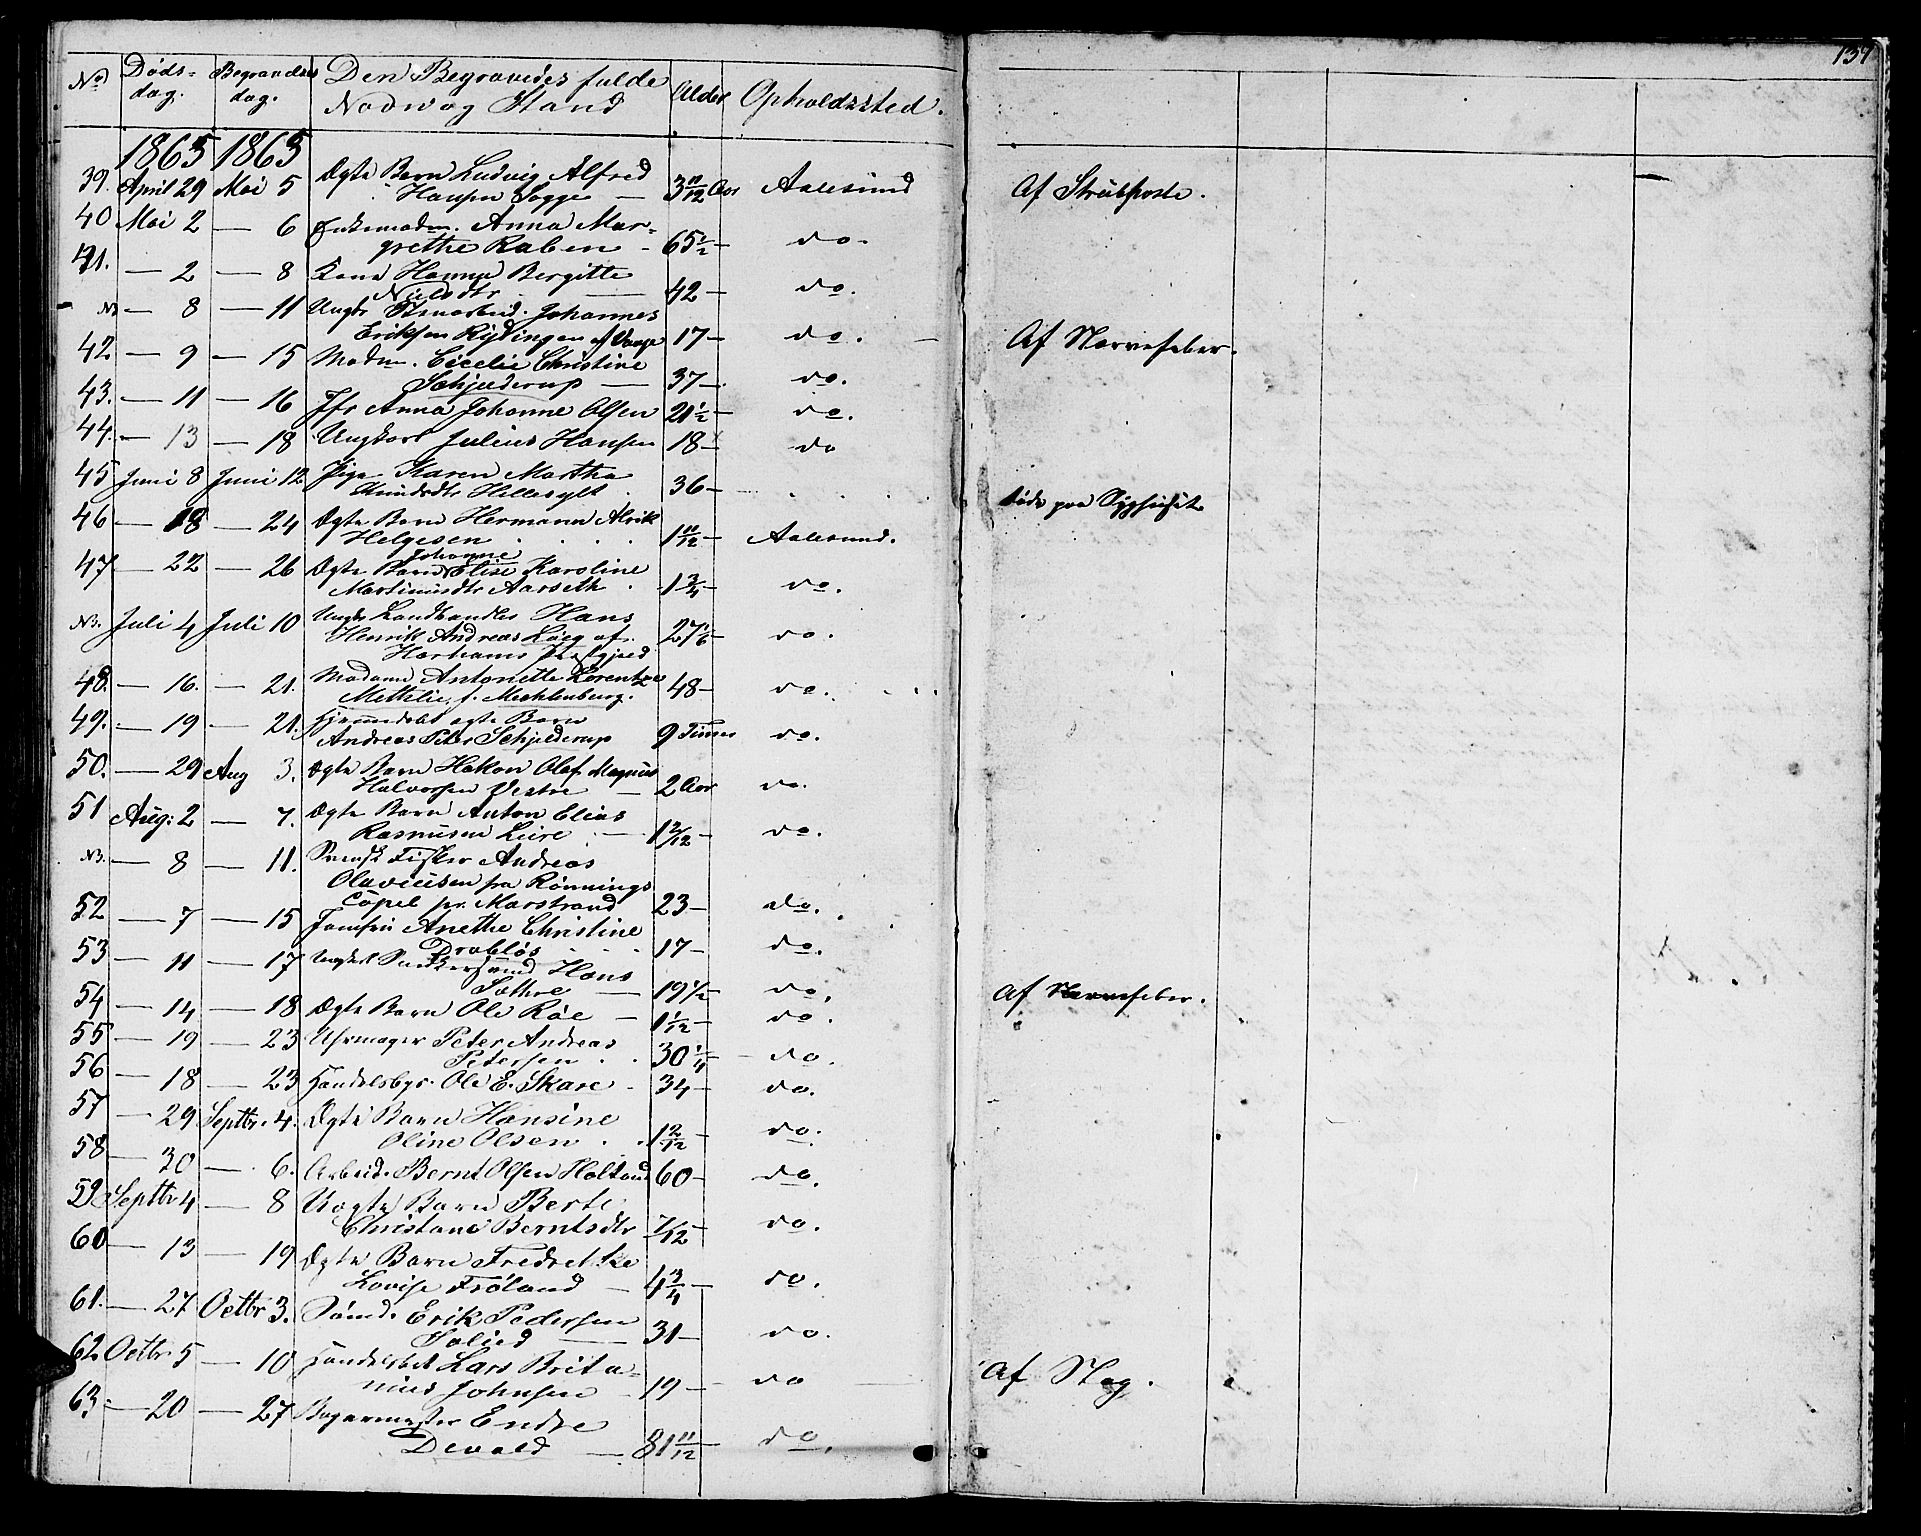 137
No Døds= Begravelses Den Begravedes fulde Alder Opholdssted.
dag. dag. Navn og Stand
1865 1865
39. April 29 Mai 5 Ægte Barn Ludvig Alfred
Hansen Sogge — 3 11/12 Aar Aalesund Af Strubehoste.
40 Mai 2 — 6 Enkemadm. Anna Mar-
grethe Raben - 65 1/2 — do.
41. — 2 — 8 Kone Hanna Bergitte
Nielsdtr — 42 — do.
NB — 8 — 11 Ungk. Johannes
Eriksen 17 — do. Af Nervefeber.
42 — 9 — 15 Madm. Cicelie Christine
Schjelderup — 37 — do.
43. — 11 — 16 Jfr Anna Johanne Olsen 21 1/2 — do.
44. — 13 — 18 Ungkarl Julius Hansen 18 — do
45 Juni 8 Juni 12 Pige Karen Martha
Knudsdtr Hellesylt 36 — døde paa Sygehuset
46 — 18 — 24 Ægte Barn Hermann Alrik
Helgesen 1 11/12 — Aalesund.
47 — 22 — 26 Ægte Barn Johanne Elise Karoline
Martinusdtr Aarseth 1 3/4 — do.
NB. Juli 4 Juli 10 Ungk. Landhandler Hans
Henrik Andreas af 27 1/6 — do.
Harhams Præstgjæld
48. — 16. — 21. Madame Antonette Lorentze
Methlie, f. Mechlenburg. 48 — do.
49. — 19 — 21. Hjemmedøbt ægte Barn
Andreas Peter Schjelderup 9 Timer do.
50. — 29 Aug 3. Ægte Barn Hakon Olaf Magnus
Halvorsen Vestre — 2 Aar do.
51 Aug: 2 — 7. Ægte Barn Anton Elias
Rasmusen Leire — 1 2/12 — do.
NB. — 8 — 11. Svensk Fisker Andreas
Olaviusen fra Rønnings
Capel pr. Marstrand 23 — do.
52 — 7 — 15 Jomfru Anethe Christine
Drabløs 17 — do.
53 — 11 — 17 Ungkl Hans
Sæthre — 19 1/2 — do, Af Nervefeber.
54 — 14 — 18 Ægte Barn Ole Røe — 1 1/12 — do.
55 — 19 — 23 Uhrmager Peter Andreas
Petersen 30 1/4 — do.
56 — 18 — 23 Handelsbgr. Ole E. Skare - 34 — do.
57 — 29 Septbr. 4. Ægte Barn Hansine
Oline Olsen 1 2/12 — do.
58 — 30 — 6. Arbeid. Bernt Olsen Holtand 60 — do.
59 Septbr 4 — 8 Uægte Barn Berte
Christane Berntsdtr 7/12 — do.
60 — 13 — 19 Ægte Barn Fredrikke
Lovise Frøland — 4 3/4 — do.
61. — 27 Octbr 3. Sømd. Erik Pedersen
31 — do.
62 Octbr 5 — 10 Lars Brita=
nius Johnsen - 19 — do Af Slag.
63. — 20 — 27 Bogermester Endre
Devold — 81 11/12 — do.